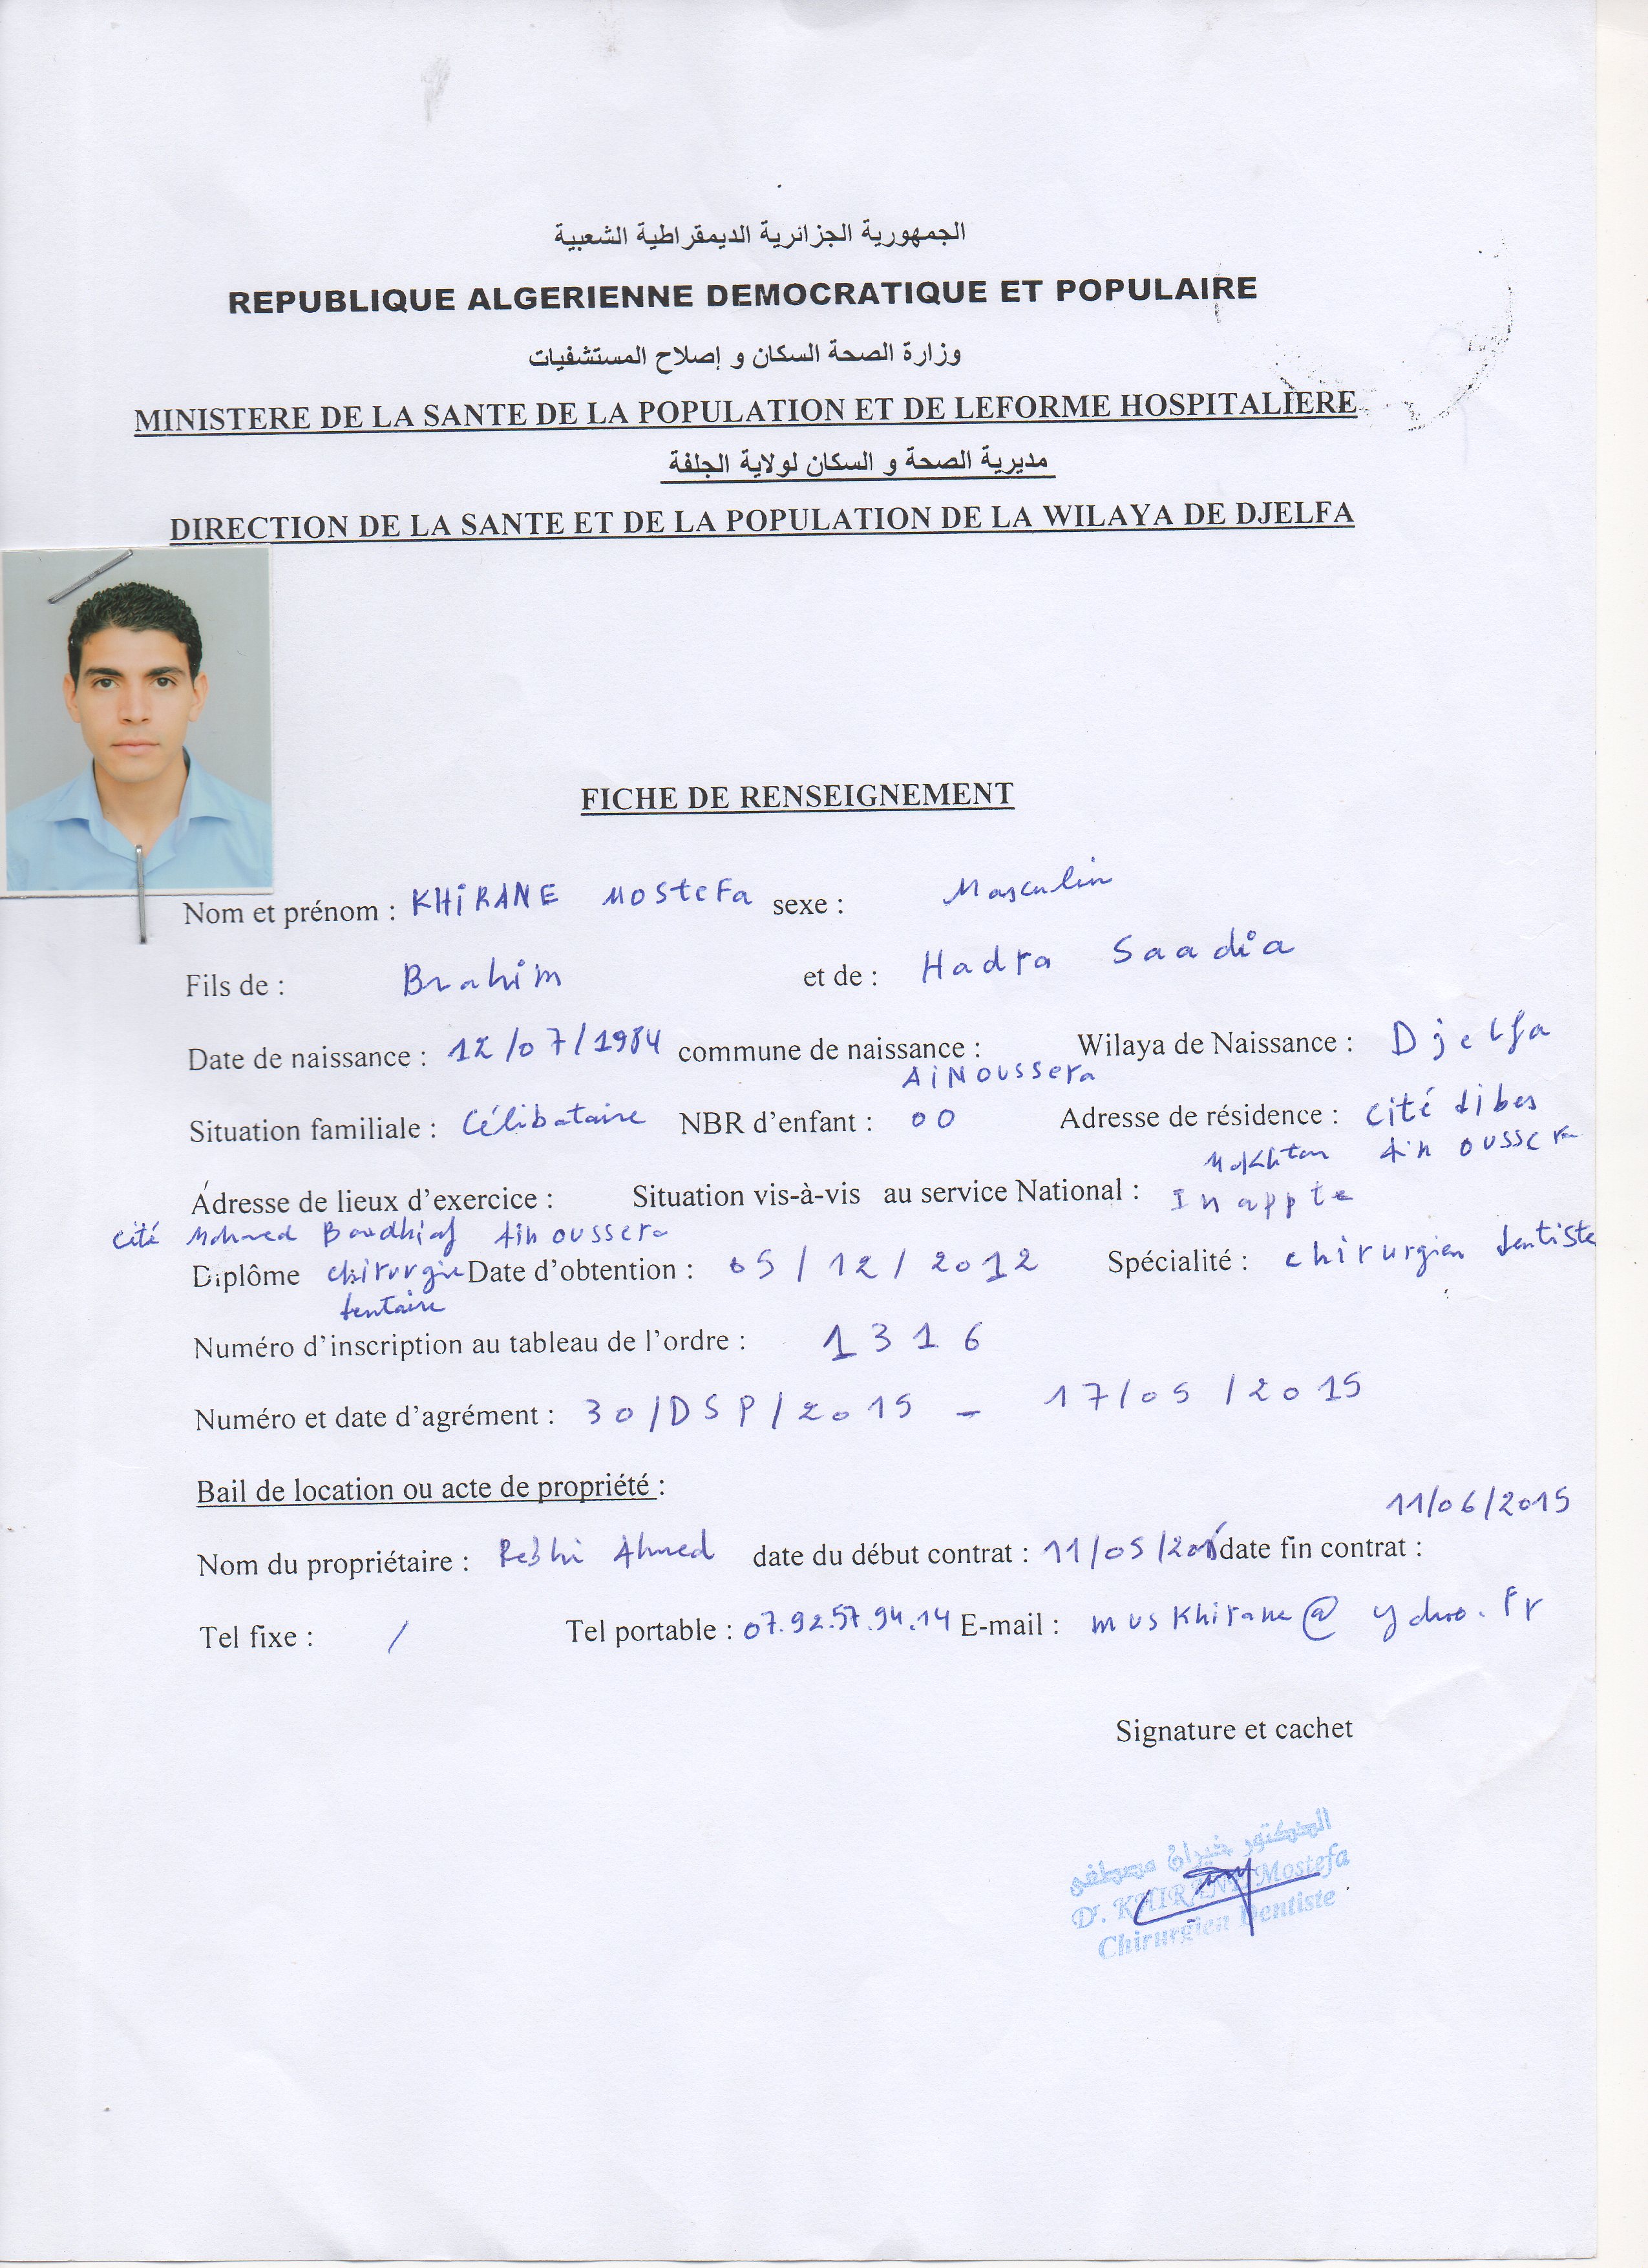 الجمهورية الجزائرية الديمقراطية الشعبية
REPUBLIQUE ALGERIENNE DEMOCRATIQUE ET POPULAIRE
وزارة الصحة السكان و إصلاح المستشفيات
MINISTERE DE LA SANTE DE LA POPULATION ET DE LEFORME HOSPITALIERE
مديرية الصحة و السكان لولاية الجلفة
DIRECTION DE LA SANTE ET DE LA POPULATION DE LA WILAYA DE DJELFA
FICHE DE RENSEIGNEMENT
Nom et prénom : KHIRANE MOSTEFA sexe : Masculin
Fils de : Brahim et de : Hadra Saadia
Date de naissance : 12/07/1984 commune de naissance : Wilaya de Naissance : Djelfa
AiNoussera
Situation familiale : Célibataire NBR d'enfant : 00 Adresse de résidence : cité
Ain oussera
Adresse de lieux d'exercice : Situation vis-à-vis au service National : Inappte
cité Ain oussera
Diplôme chirurgie Date d'obtention : 05/12/2012 Spécialité : chirurgien dentiste
dentaire
Numéro d'inscription au tableau de l'ordre : 1316
Numéro et date d'agrément : 30/DSP/2015 - 17/05/2015
Bail de location ou acte de propriété :
11/06/2015
Nom du propriétaire : Rebhi Ahmed date du début contrat : 11/05/ date fin contrat :
Tel fixe : / Tel portable : 07.92.57.94.14 E-mail : muskhirane@yahoo.fr
Signature et cachet
الدكتور خيران مصطفى
Dr. KHIRANE Mostefa
Chirurgien Dentiste